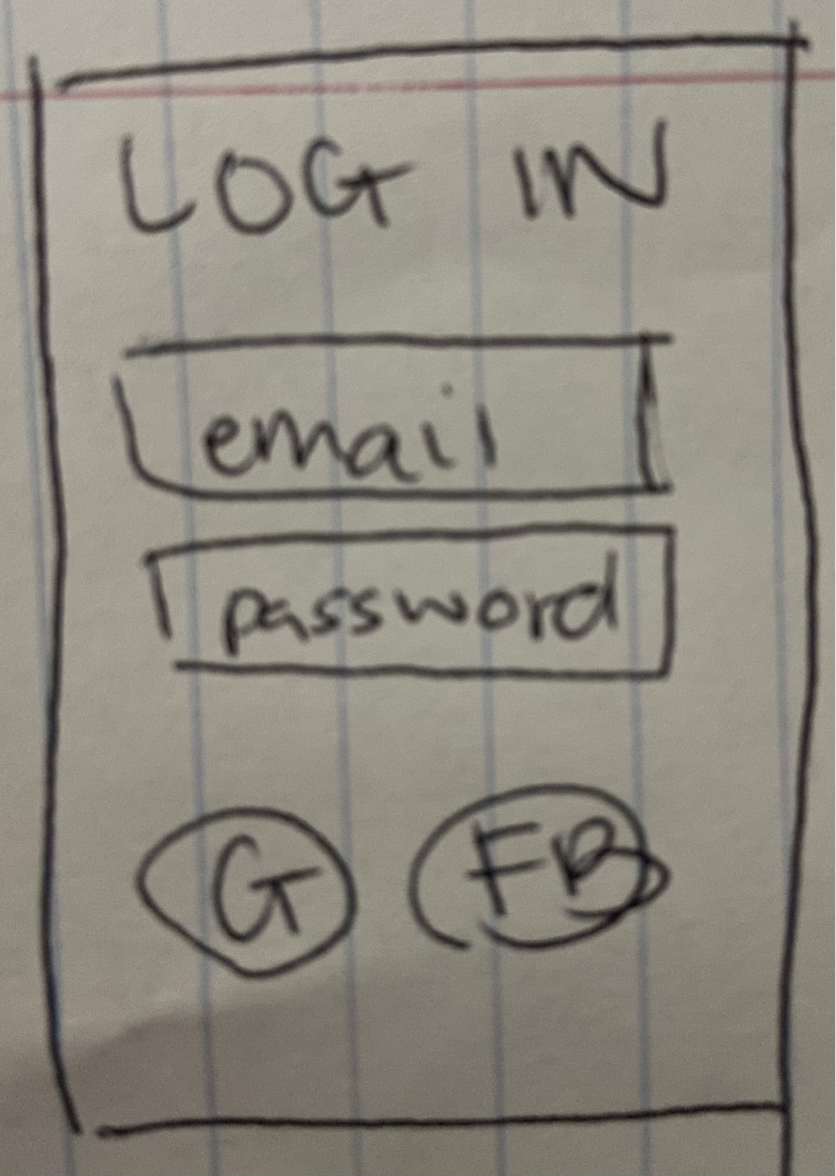 LOG IN
email
password
G FB